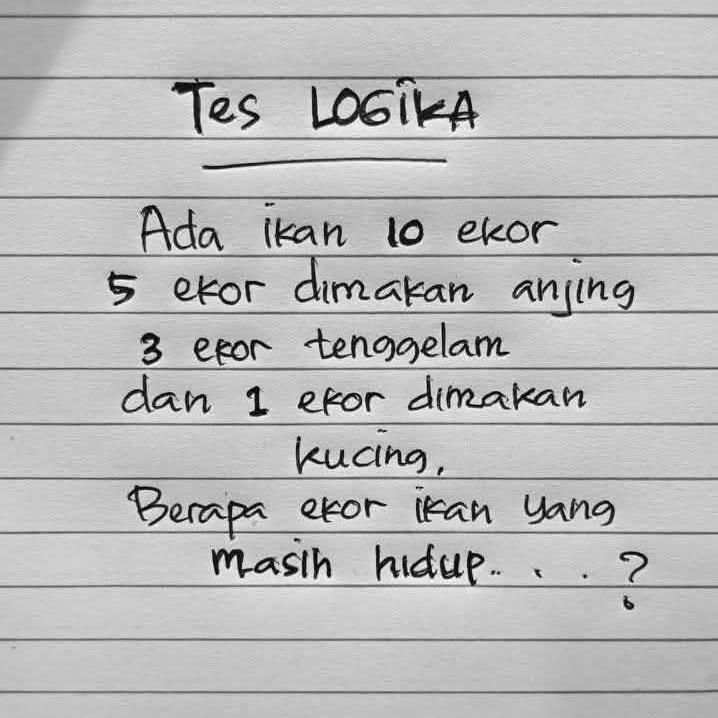 Tes LOGIKA
Ada ikan 10 ekor
5 ekor dimakan anjing
3 ekor tenggelam
dan 1 ekor dimakan
kucing,
Berapa ekor ikan yang
masih hidup....?